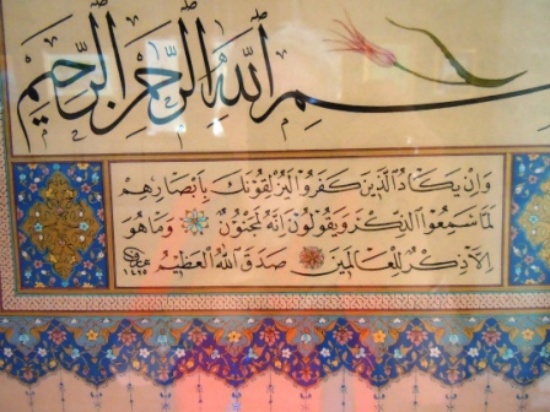 بسم الله الرحمن الرحيم
وَاِنْ يَكَادُ الَّذِينَ كَفَرُوا لَيُزْلِقُونَكَ بِاَبْصَارِهِمْ
لَمَّا سَمِعُوا الذِّكْرَ وَيَقُولُونَ اِنَّهُ لَمَجْنُونٌ وَمَا هُوَ
اِلَّا ذِكْرٌ لِلْعَالَمِينَ صَدَقَ اللهُ الْعَظِيمُ